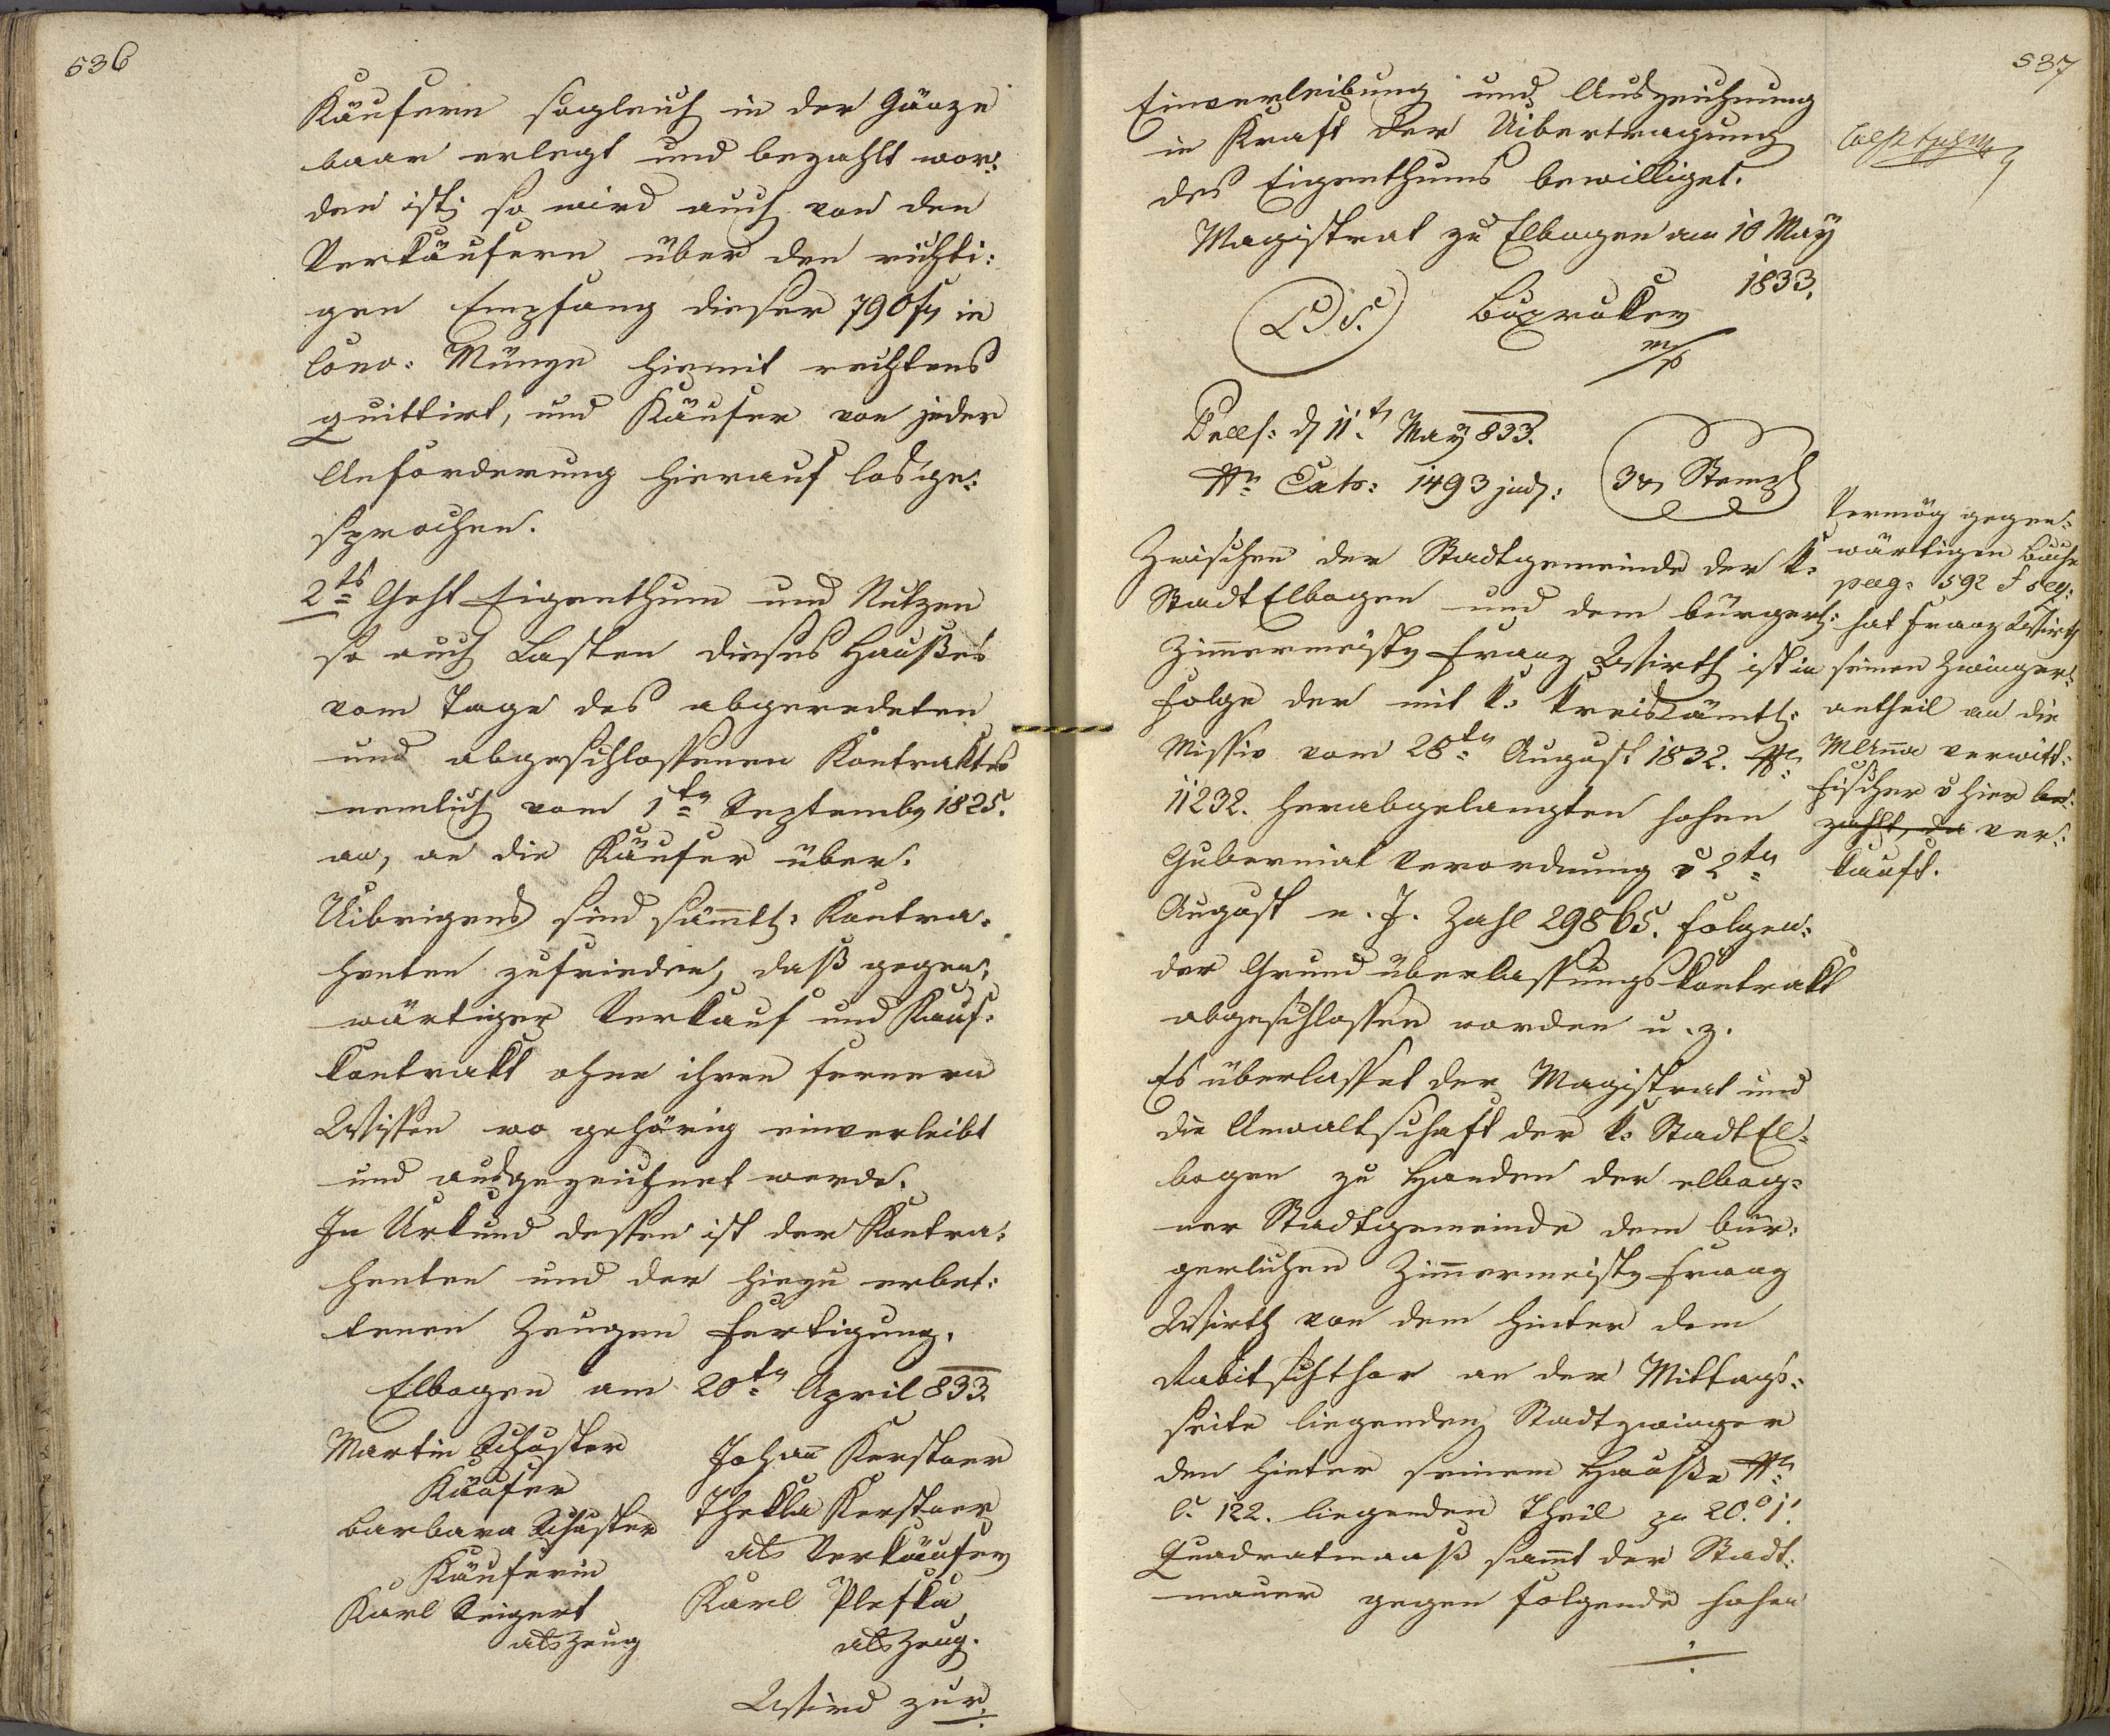 536
Käufern sogleich in der Gänze
baar erlegt und bezahlt wor:
den ist; so wird auch von den
Verkäufern über den richti:
gen Empfang dieser 790 f in
Conv: Münze hiemit rechtens
quittirt, und Käufer von jeder
Anforderung hierauf losge:
sprochen.
2ts Geht Eigenthum und Nutzen
so auch Lasten dieses Haußes
vom Tage des abgeredeten
und abgeschlossenen Kontraktes
nemlich vom 1ten Septembr 1825.
an, an die Käufer über.
Uibrigens sind sämmtl: Kontra:
henten zufrieden, daß gegen:
wärtiger Verkauf und Kauf:
kontrakt ohne ihren fernern
Wissen wo gehörig einverleibt
und ausgezeichnet werde.
In Urkund dessen ist der Kontra:
henten und der hiezu erbet:
tenen Zeugen Fertigung.
Elbogen am 20ten April 833.
Martin Schuster
Käufer
Barbara Schuster
Käuferin
Karl Seigert
als Zeug
Johann Kerstner
Thekla Kerstner
als Verkäufer
Karl Pleska
als Zeug.
Wird zur
537
Einverleibung und Auszeichnung
in Kraft der Uibertragung
des Eigenthums bewilliget.
Magistrat zu Elbogen am 10 May
1833.
L. S.
m/p
Präs: d 11t May 833.
Nr Exh: 1493 jud:
3 Stempl
Zwischen der Stadtgemeinde der k:
Stadt Elbogen und dem bürgerl:
Zimmermeistr Franz Wirth ist in
Folge der mit k: kreisämtl:
Missiv vom 28ten August 1832. Nr
11232. herabgelangten hohen
Gubernial Verordnung v 2ten
August n. J. Zahl 29865. folgen:
der Grundüberlassungskontrakt
abgeschlossen worden u. z.
Es überlasset der Magistrat und
die Anwaltschaft der k: Stadt El:
bogen zu Handen der elbog:
ner Stadtgemeinde dem bür:
gerlichen Zimmermeistr Franz
Wirth von dem hinter dem
Rabitschthor an der Mittags:
seite liegenden Stadtzwinger
den hinter seinem Hauße Nr
C. 122. liegenden Theil pr 20.° 1'
Quadratmaaß sammt der Stadt:
mauer gegen folgende hohen
Vermög gegen:
wärtigen Buch
pag: 592 Folg:
hat Franz Wirth
seinen Zwinger:
antheil an die
M Anna verwitt:
Fischer v hier be:
zahlt, da ver:
kauft.